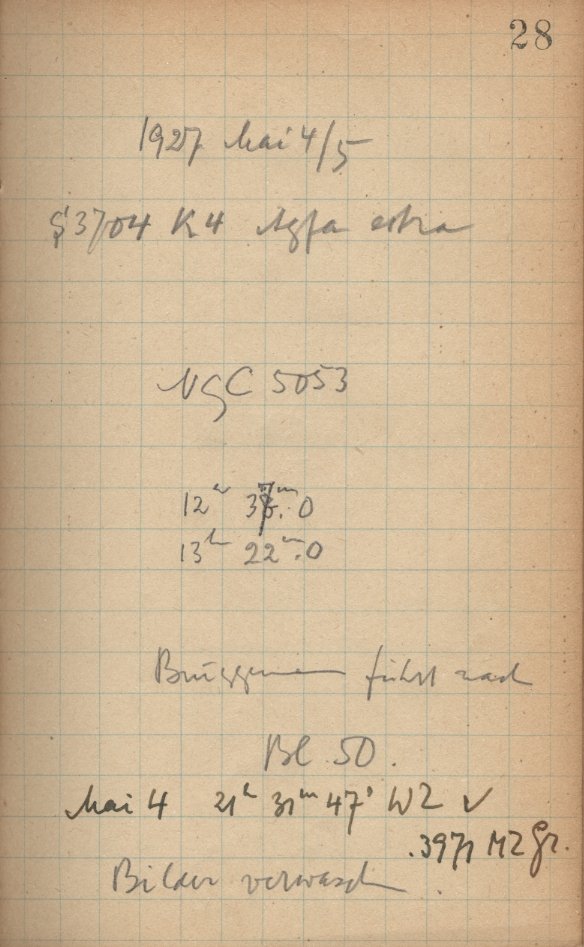 28
1927 Mai 4/5
S 3704 K4 Agfa extra
NGC 5053
12h 37m.0
13h 22m.0
führt nach
Bl. 50.
Mai 4 21h 31m 47s WZ ✓
.3971 MZ Gr.
Bilder verwaschen.